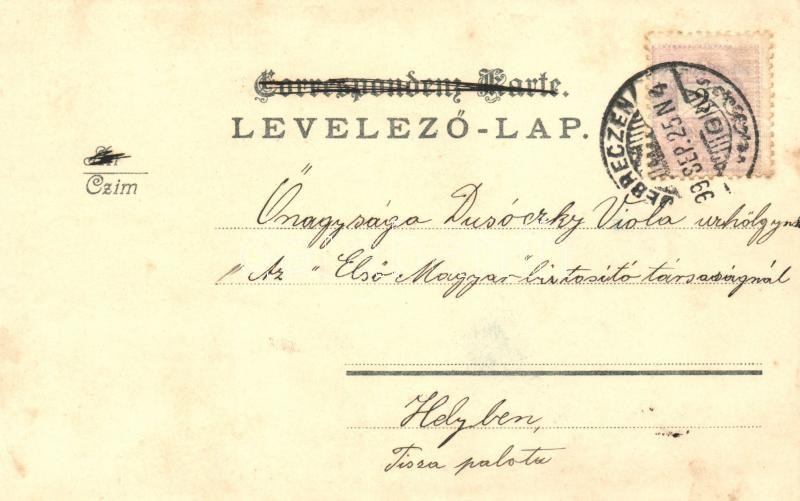 Correspondenz-Karte.
LEVELEZŐ-LAP.
An
Czim
DEBRECZEN
99 SEP. 25 N 4
Őnagysága Dusóczky Viola urhölgynek
Az "Első Magyar" biztositó társaságnál
Helyben,
Tisza palota